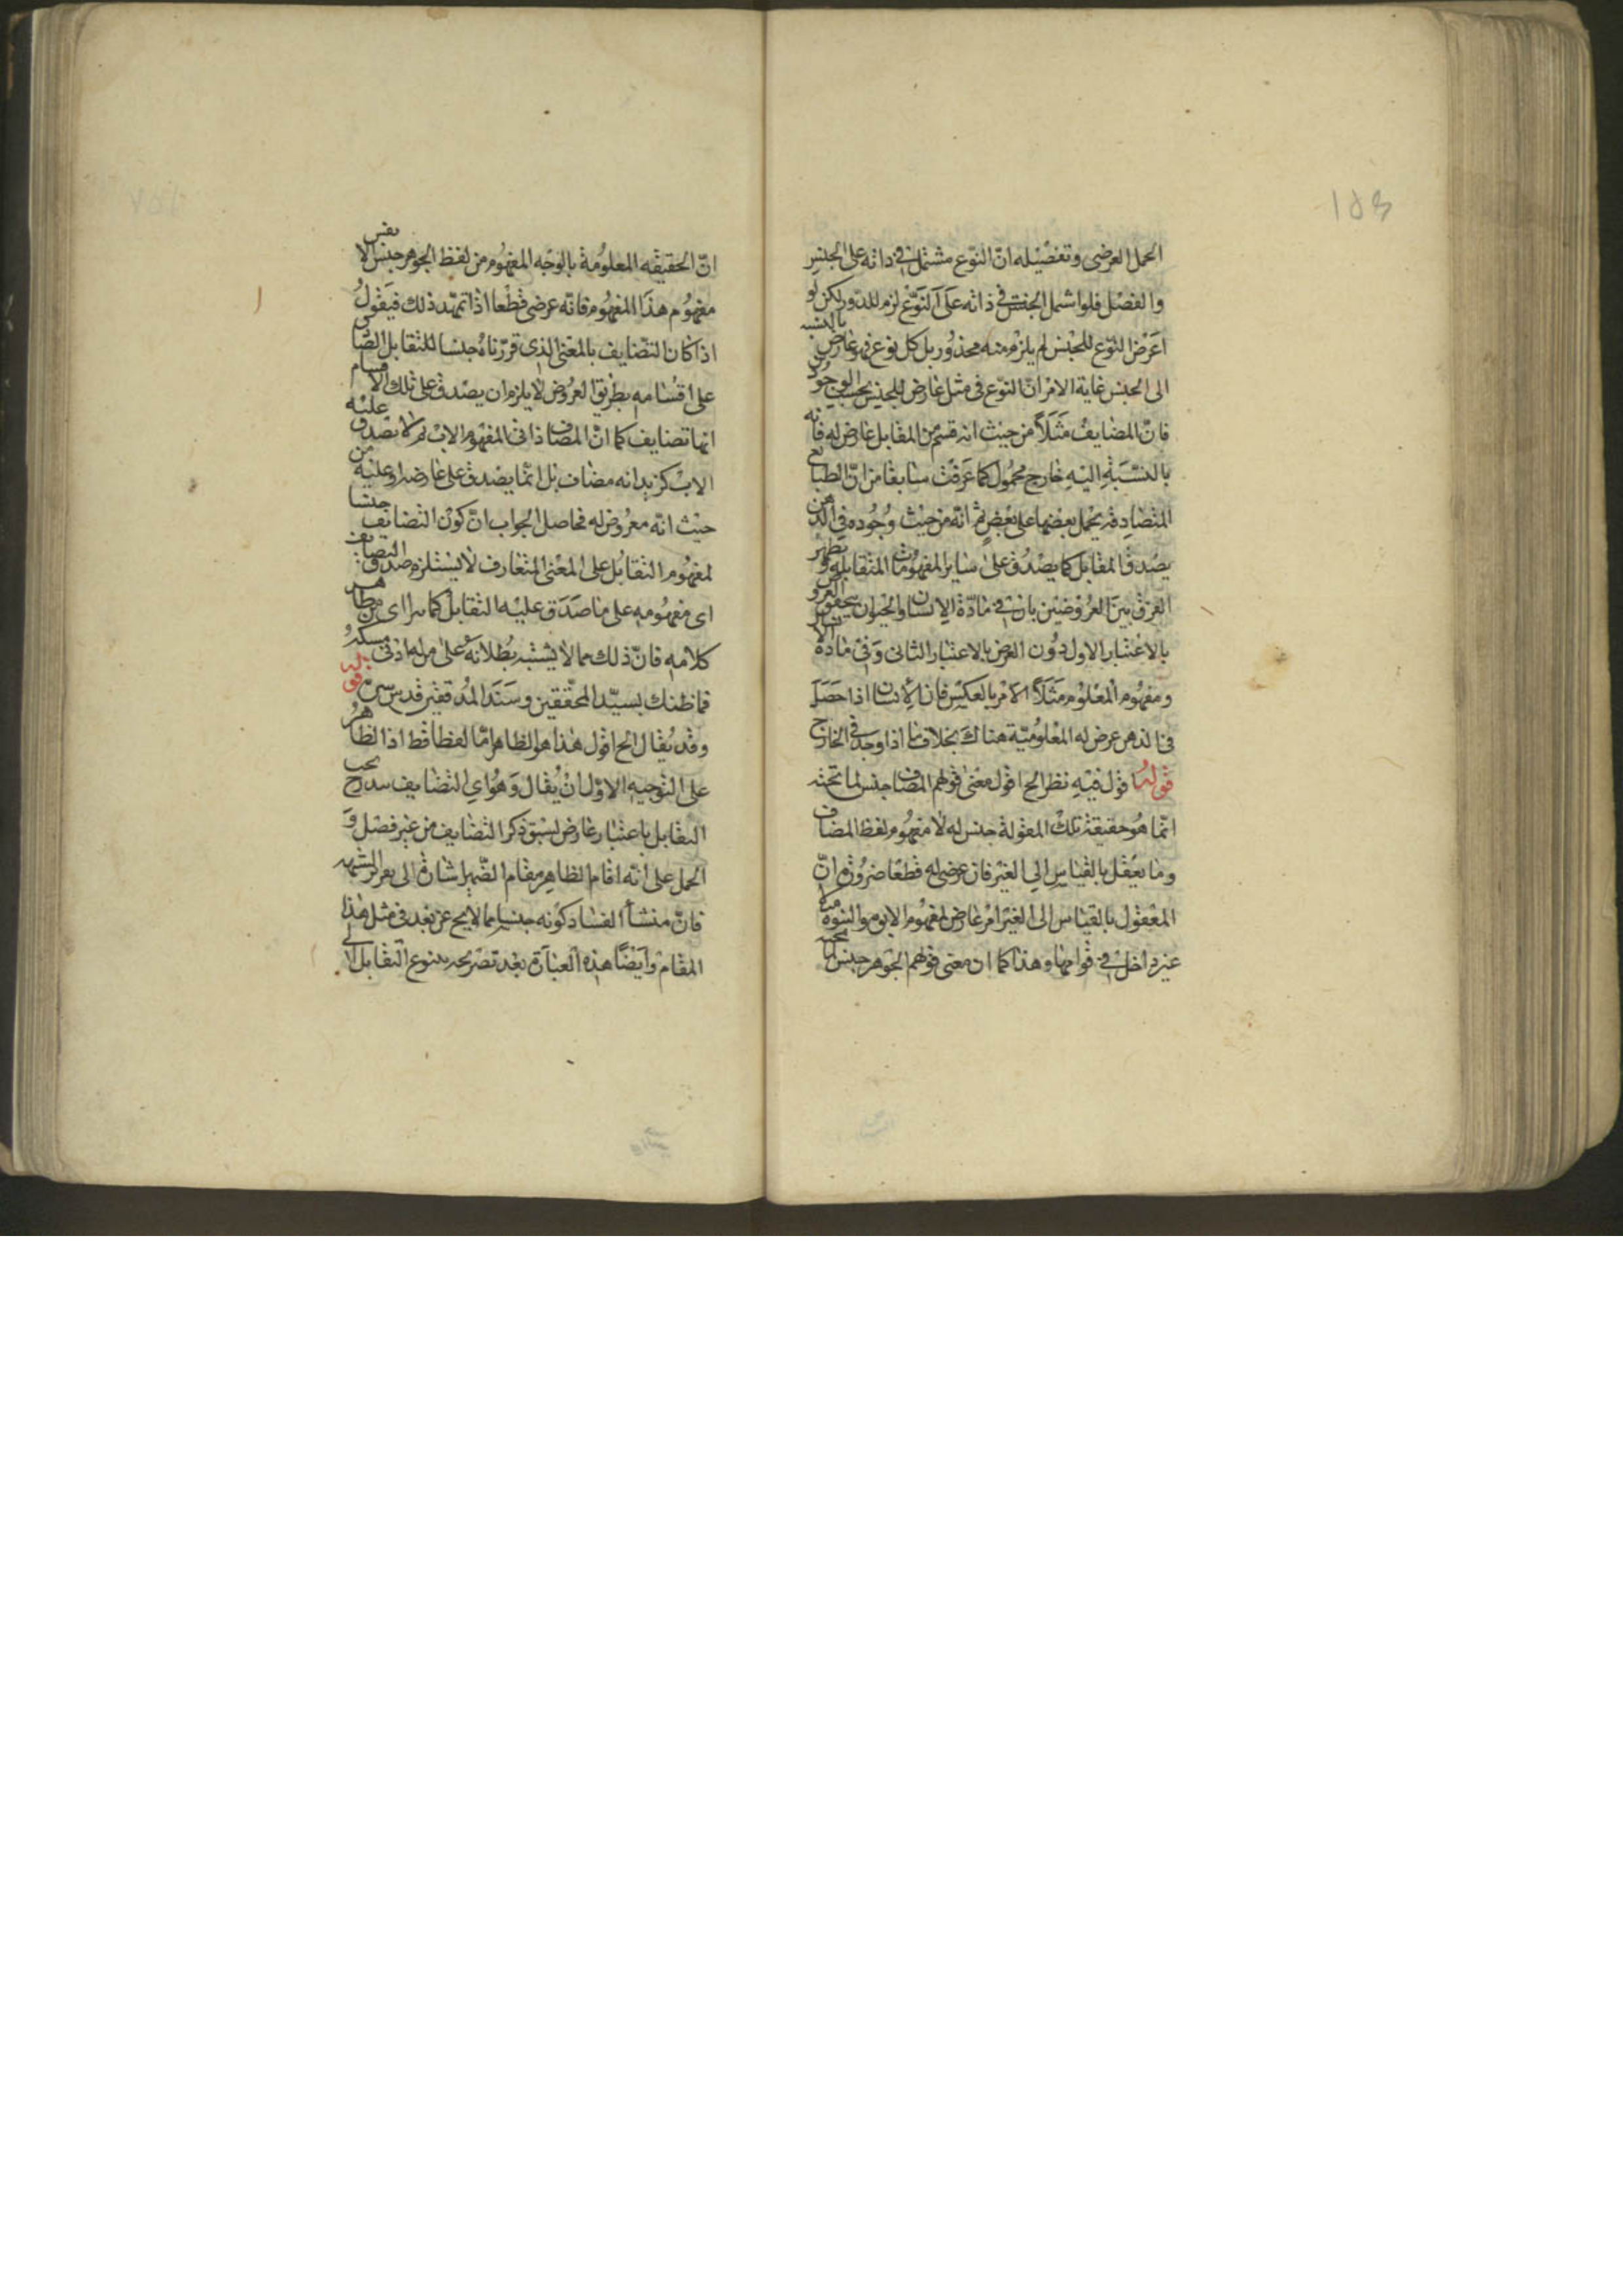 الحمل العرضى وتفصيله انّ النّوع مشتمل فى ذاته على الجنس
والفصل فلو اشتمل الجنس فى ذاته على النّوع لزم الدّور ولكن لو
اعرض النّوع للجنس لم يلزم منه محذور بل كل نوع فهو عارض بالنسبه
الى الجنس غاية الامر انّ النّوع فى مثل عارض للجنس بحسب الوجود
فانّ المضايف مثلاً من حيث انه قسم من المقابل عارض له فانه
بالنّسبة اليه خارج محمول كما عرفت سابقا من انّ الطبايع
المتصادقه يحمل بعضها على بعض ثم انّه من حيث وجوده فى الذهن
يصدق المقابل كما يصدق على ساير المفهومات المتقابله ويظهر
الفرق بين العروضين بان فى مادّة الانسان والحيوان يتحقق العروض
بالاعتبار الاول دون العرض بالاعتبار الثانى وفى مادة
ومفهوم المعلوم مثلاً الامر بالعكس فان الانسان اذا حصل
فى الذهن عرض له المعلوميّة هناك بخلاف ما اذا وجد فى الخارج
قوله اقول فيه نظر الخ اقول معنى قولهم المضاف جنس لما تحته
انما هو حقيقة تلك المقولة جنس له لا مفهوم لفظ المضاف
وما يعقل بالقياس الى الغير فان عرضى له قطعا ضرورة انّ
المعقول بالقياس الى الغير امر عارض لمفهوم الابوة والبنوة مثلا
غير داخل فى قوامها وهذا كما ان معنى قولهم الجوهر جنس لما تحته
انّ الحقيقه المعلومة بالوجه المفهوم من لفظ الجوهر جنس لا نفس
مفهوم هذا المفهوم فانّه عرضى قطعا اذا تمهّد ذلك فيقول
اذا كان التضايف بالمعنى الذى قررناه جنسا للتقابل الصادق
على اقسامه بطريق العروض لا يلزم ان يصدق على تلك الاقسام
انها تضايف كما انّ المضاف ذاتى لمفهوم الاب ثم لا يصدق عليه
الاب كزيد انه مضاف بل انّما يصدق على عارضه او عليه من
حيث انّه معروض له فحاصل الجواب انّ كون التضايف جنسا
لمفهوم التقابل على المعنى المتعارف لا يستلزم صدق التضايف
اى مفهومه على ما صدق عليه التقابل كما يرااى من ظاهر
كلامه فانّ ذلك مما لا يشتبه بطلانه على من له ادنى مسكة
فما ظنك بسيّد المحقّقين وسند المدققين قدس سرّه قوله
وقد يقال الخ اقول هذا هو الظاهر امّا لفظا فقط اذ الظاهر
على التوجيه الاوّل ان يقال وهو اى التضايف مندرج تحت
التقابل باعتبار عارض لسبق ذكر التضايف من غير فصل و
الحمل على انّه اقام الظاهر مقام الضّمير اشارة الى
فانّ منشأ الفساد كونه جنسا مما لا يخ عن بعد فى مثل هذا
المقام وايضًا هذه العبارة بعد تصريحه بتنوع التقابل الى